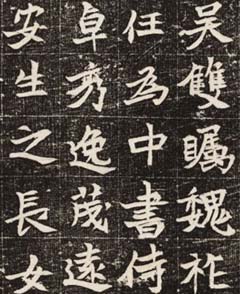 吳雙矚魏
任為中書侍
卓秀逸茂遠
安生之長女